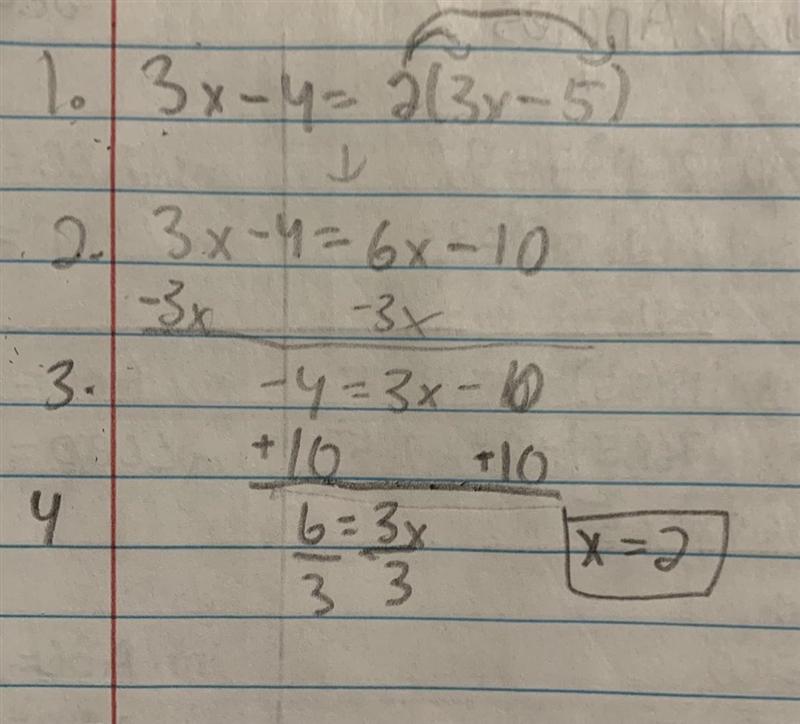 1. 3x - 4 = 2(3x - 5)
↓
2. 3x - 4 = 6x - 10
-3x -3x
3. -4 = 3x - 10
+10 +10
4 6 = 3x
3 3 x = 2